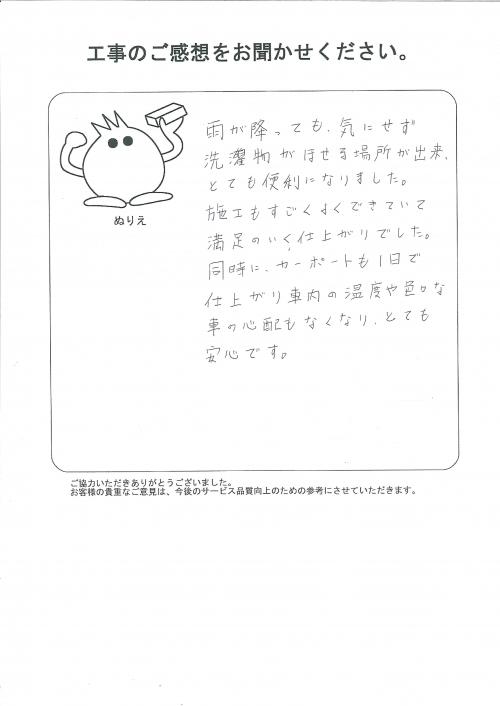 工事のご感想をお聞かせください。
雨が降っても、気にせず
洗濯物がほせる場所が出来、
とても便利になりました。
施工もすごくよくできていて
満足のいく仕上がりでした。
同時に、カーポートも1日で
仕上がり車内の温度や色々な
車の心配もなくなり、とても
安心です。
ぬりえ
ご協力いただきありがとうございました。
お客様の貴重なご意見は、今後のサービス品質向上のための参考にさせていただきます。